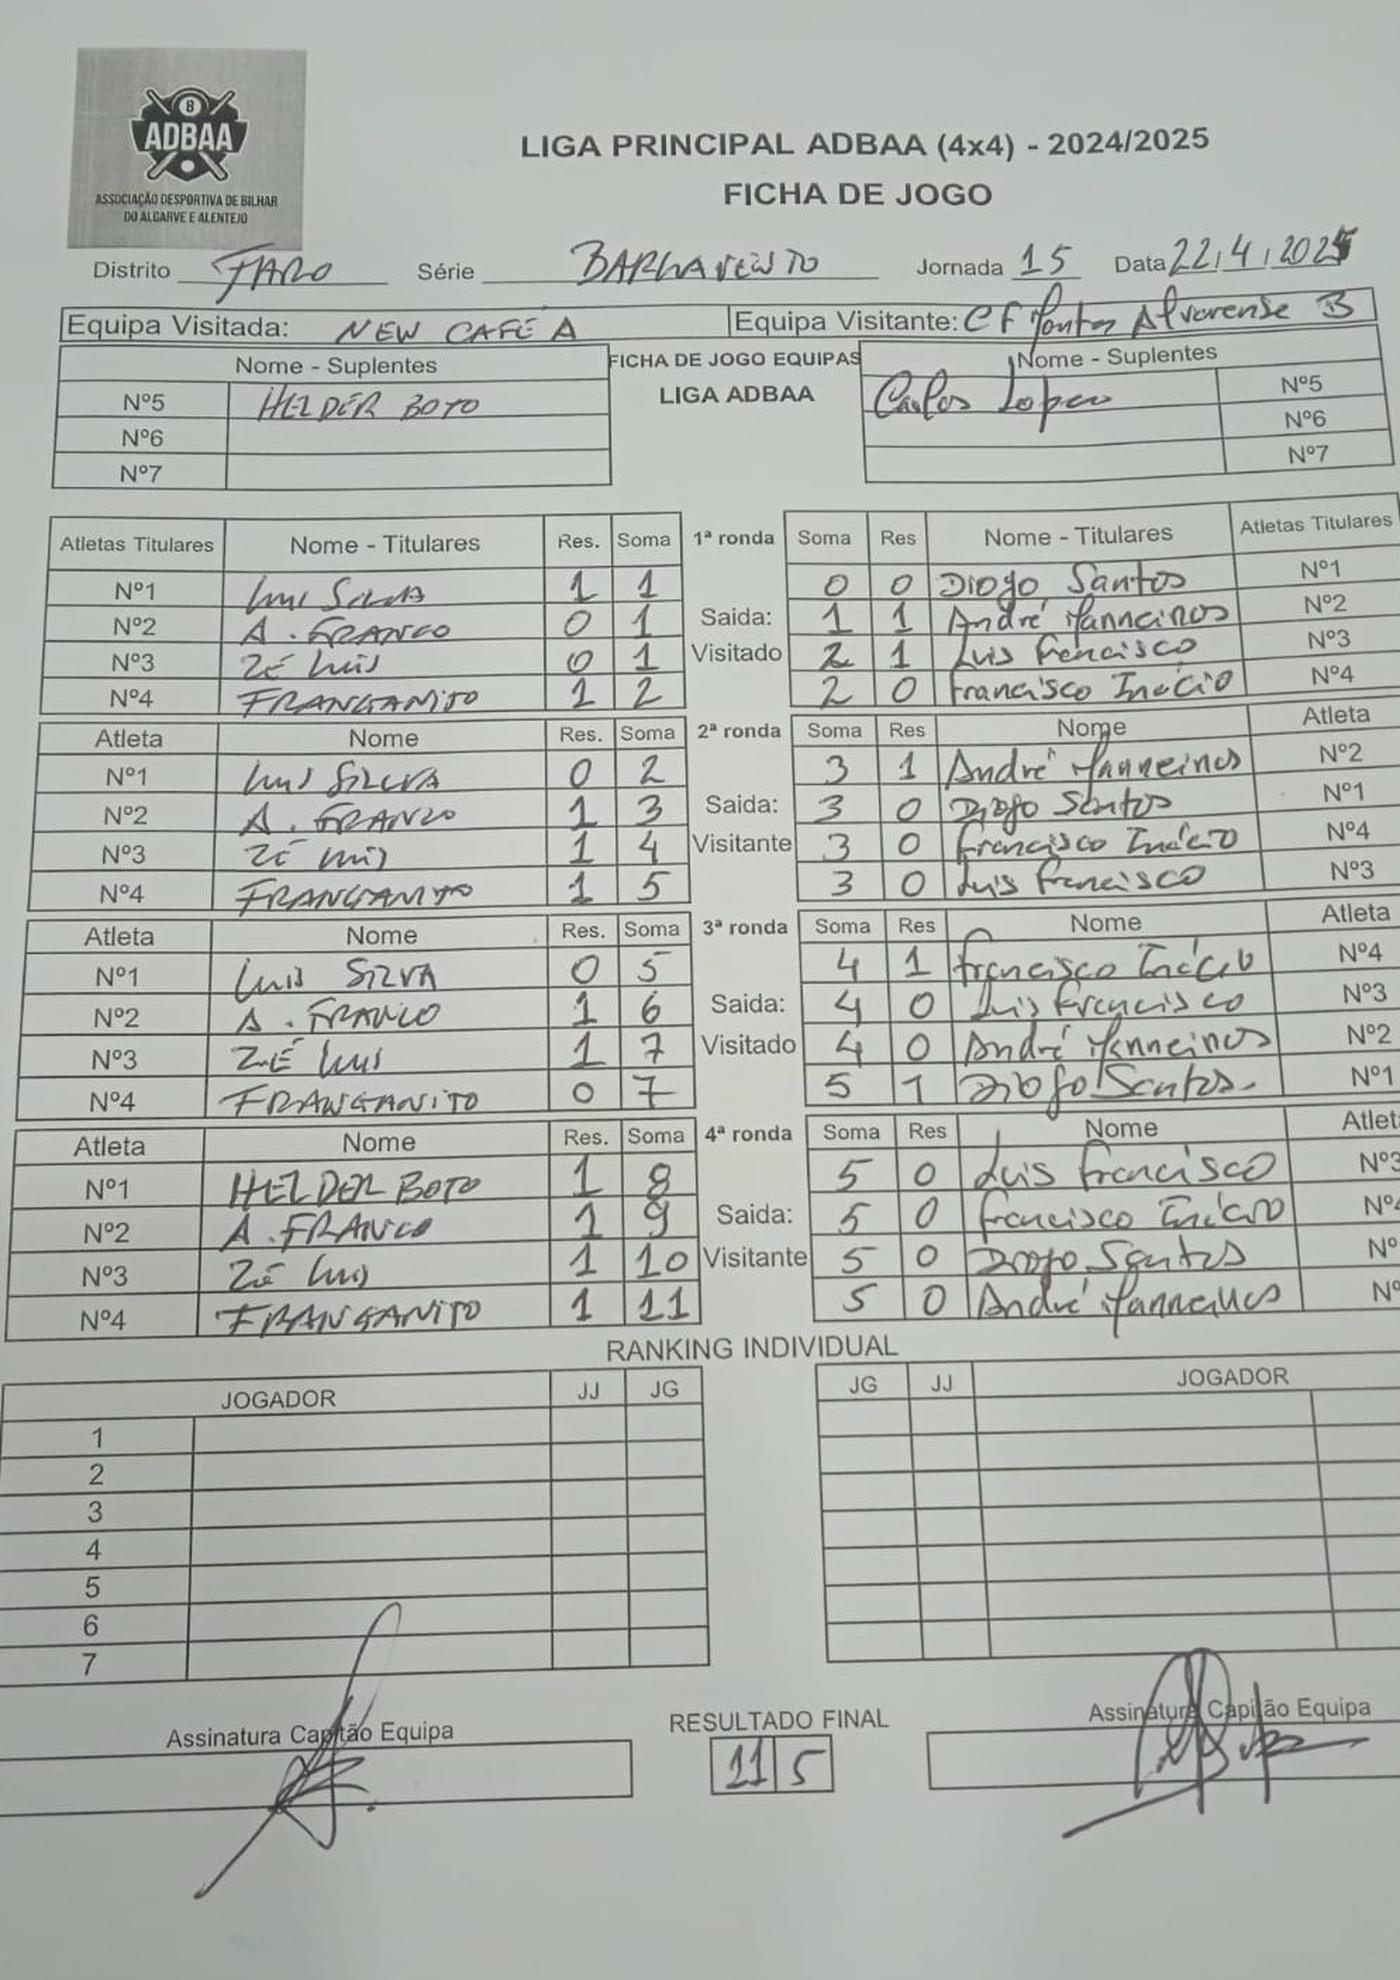 8
ADBAA
ASSOCIAÇÃO DESPORTIVA DE BILHAR
DO ALGARVE E ALENTEJO
LIGA PRINCIPAL ADBAA (4x4) - 2024/2025
FICHA DE JOGO
Distrito FARO Série BARLAVENTO Jornada 15 Data 22/4/2025
Equipa Visitada: NEW CAFÉ A Equipa Visitante: CF Montes Alvorense B
Nome - Suplentes FICHA DE JOGO EQUIPAS Nome - Suplentes
Nº5 HELDER BOTO LIGA ADBAA Carlos Lopes Nº5
Nº6 Nº6
Nº7 Nº7
Atletas Titulares Nome - Titulares Res. Soma 1ª ronda Soma Res Nome - Titulares Atletas Titulares
Nº1 Luis SILVA 1 1 0 0 Diogo Santos Nº1
Nº2 A. FRANCO 0 1 Saida: 1 1 André Nº2
Nº3 ZÉ Luis 0 1 Visitado 2 1 Luis Francisco Nº3
Nº4 FRANGANITO 1 2 2 0 Francisco Inácio Nº4
Atleta Nome Res. Soma 2ª ronda Soma Res Nome Atleta
Nº1 Luis SILVA 0 2 3 1 André Nº2
Nº2 A. FRANCO 1 3 Saida: 3 0 Diogo Santos Nº1
Nº3 ZÉ Luis 1 4 Visitante 3 0 Francisco Inácio Nº4
Nº4 FRANGANITO 1 5 3 0 Luis Francisco Nº3
Atleta Nome Res. Soma 3ª ronda Soma Res Nome Atleta
Nº1 Luis SILVA 0 5 4 1 Francisco Inácio Nº4
Nº2 A. FRANCO 1 6 Saida: 4 0 Luis Francisco Nº3
Nº3 ZÉ Luis 1 7 Visitado 4 0 André Nº2
Nº4 FRANGANITO 0 7 5 1 Diogo Santos. Nº1
Atleta Nome Res. Soma 4ª ronda Soma Res Nome Atlet
Nº1 HELDER BOTO 1 8 5 0 Luis Francisco Nº3
Nº2 A. FRANCO 1 9 Saida: 5 0 Francisco Inácio Nº
Nº3 Zé Luis 1 10 Visitante 5 0 Diogo Santos Nº
Nº4 FRANGANITO 1 11 5 0 André Nº
RANKING INDIVIDUAL
JOGADOR JJ JG JG JJ JOGADOR
1
2
3
4
5
6
7
Assinatura Capitão Equipa RESULTADO FINAL Assinatura Capitão Equipa
11 5